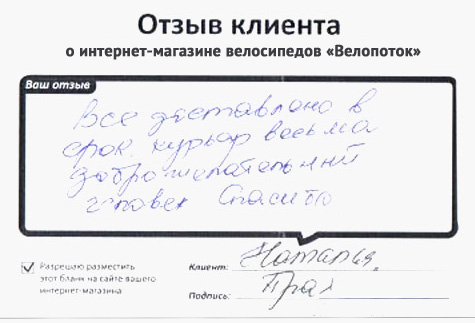 Отзыв клиента
о интернет-магазине велосипедов «Велопоток»
Ваш отзыв
Все доставлено в
срок. курьер весьма
доброжелательный
человек Спасибо
Разрешаю разместить
этот бланк на сайте вашего
интернет-магазина
Клиент: Наталья,
Подпись: